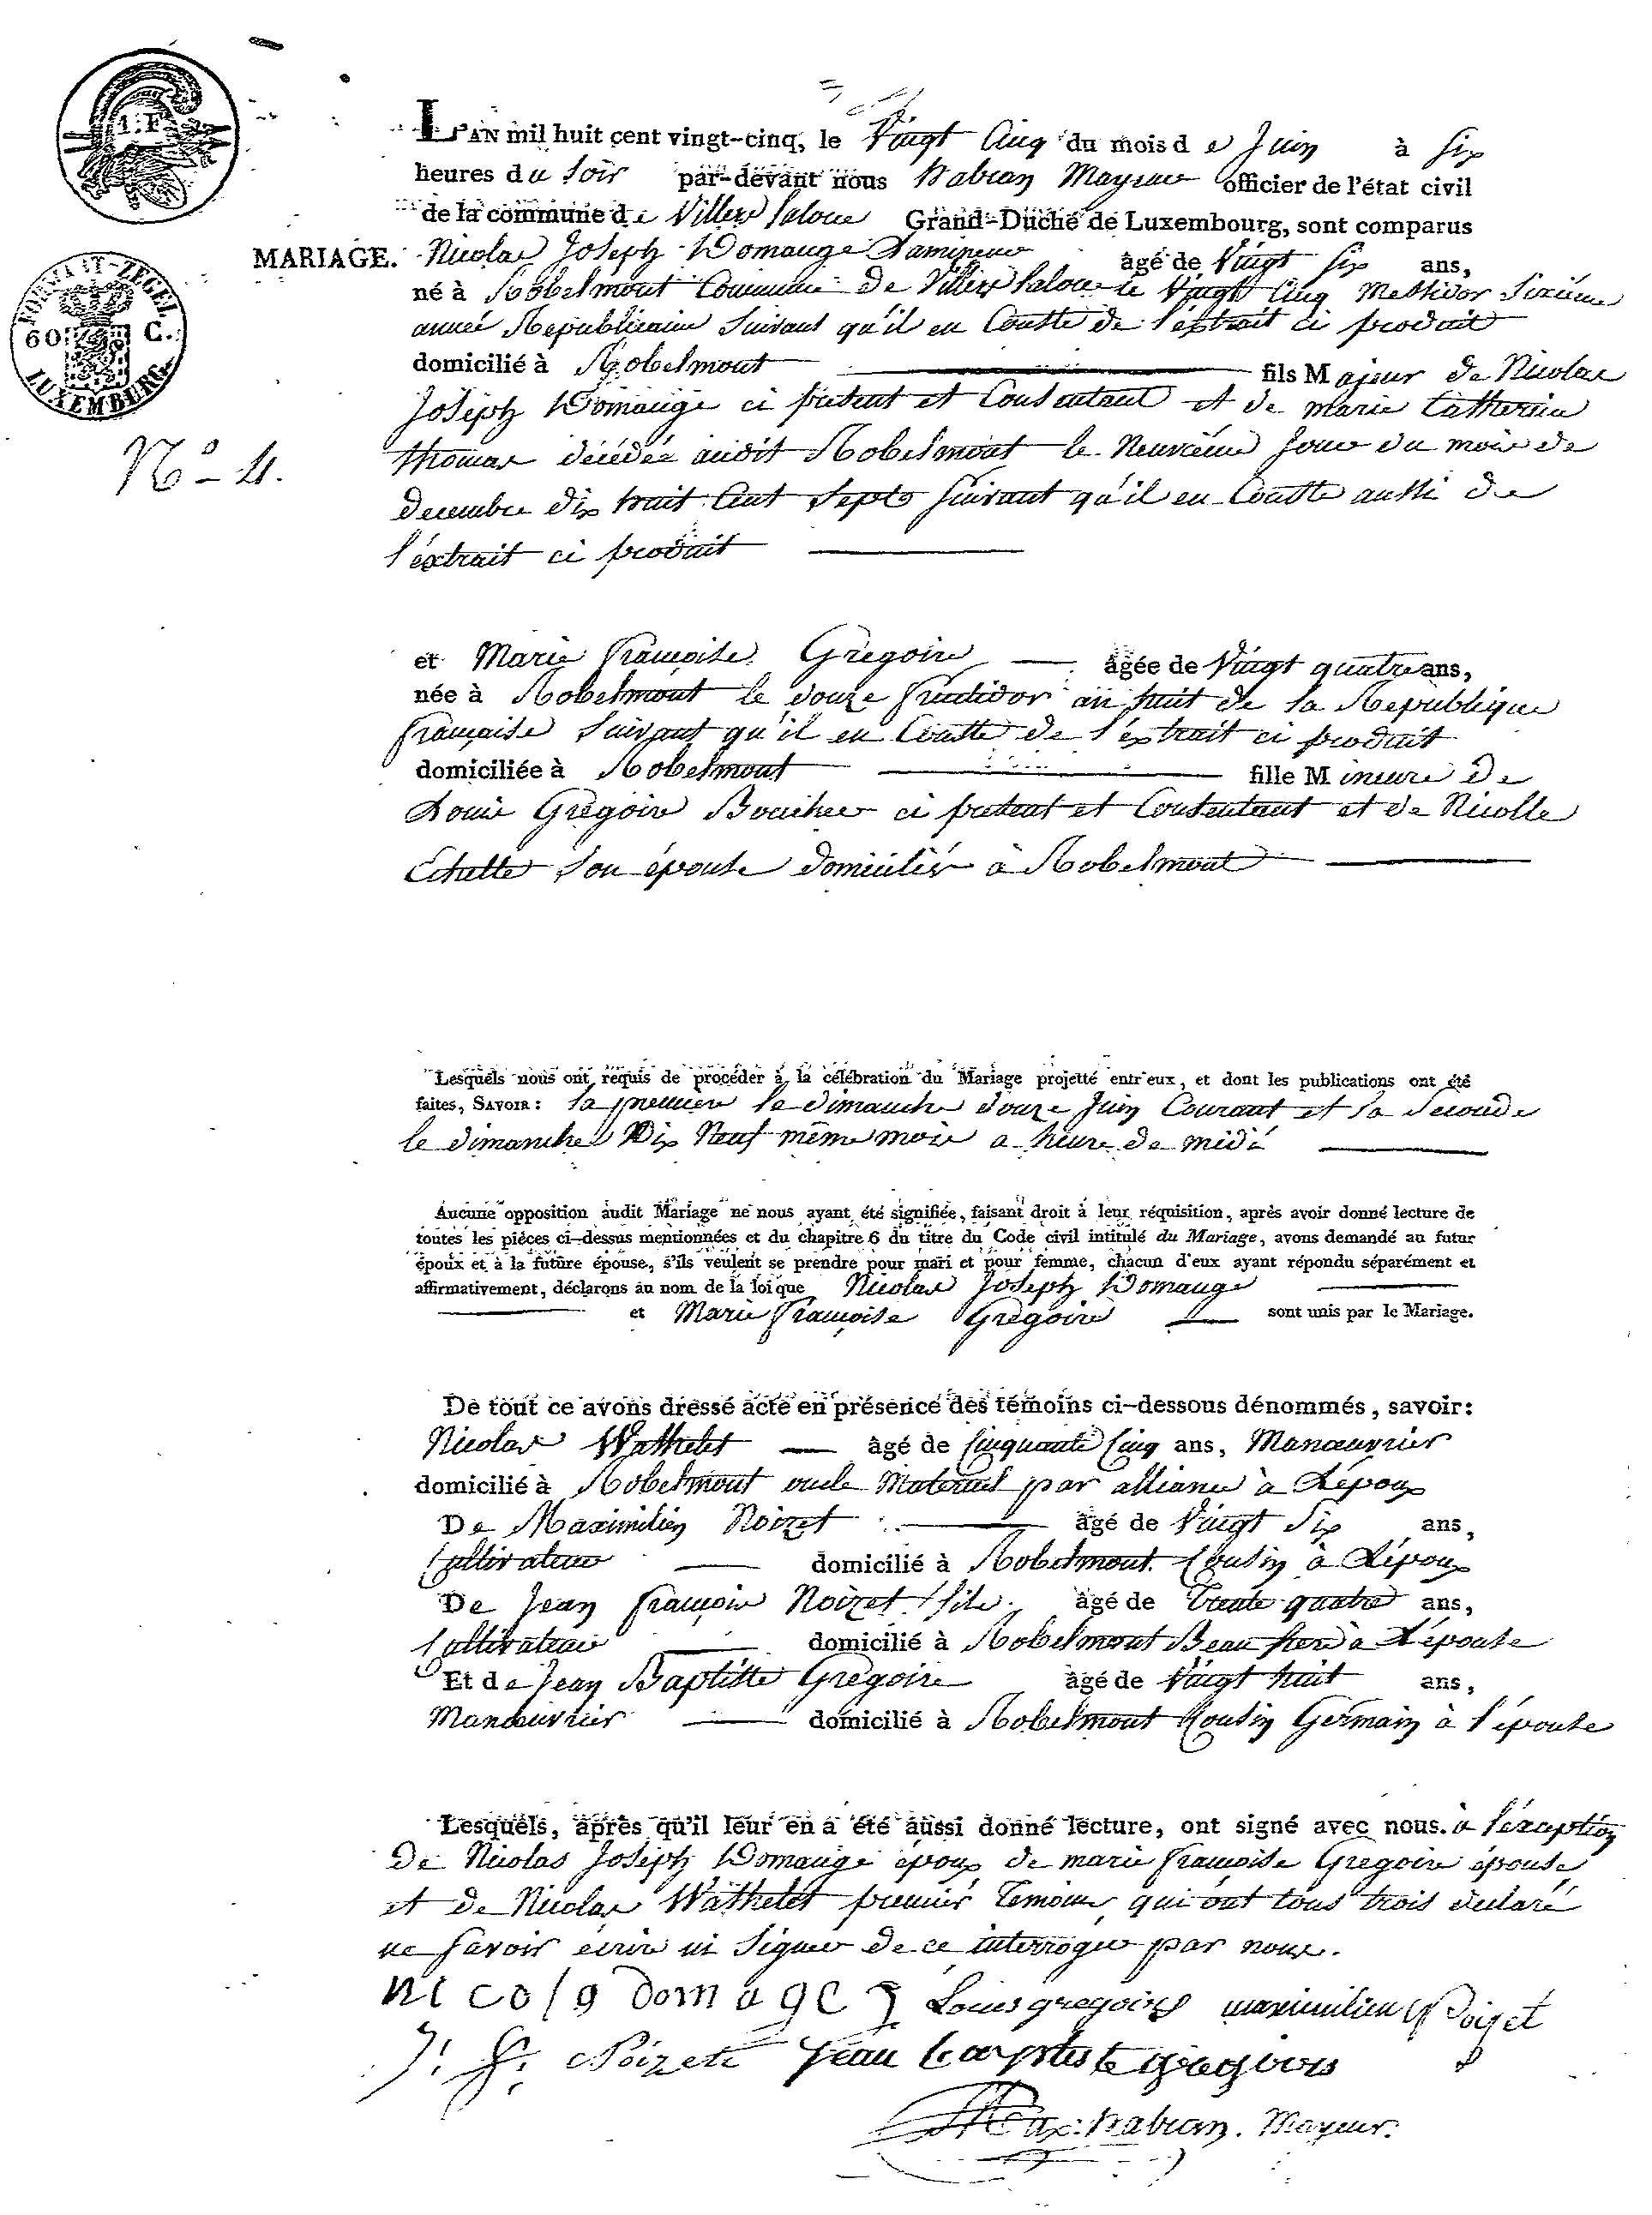 1. F
L'AN mil huit cent vingt-cinq, le Vingt Cinq du mois de Juin à six
heures du Soir par-devant nous habran Mayeur officier de l'état civil
de la commune de Villers Saloue Grand-Duché de Luxembourg, sont comparus
MARIAGE. Nicolas Joseph Domange âgé de Vingt six ans,
FORMAAT-ZEGEL
60 C.
LUXEMBURG
né à Robelmont Commune de Villers Saloue le Vingt Cinq Messidor Sixieme
année Republicaine Suivant qu'il en Conste de l'éxtrait ci produit
domicilié à Robelmont fils Majeur de Nicolas
Joseph Domange ci présent et Consentant et de marie Catherine
thomas décédée audit Robelmont le Neuvième Jour du mois de
Decembre dix huit Cent Sept Suivant qu'il en Conste aussi de
l'éxtrait ci produit
N° - 4.
et Marie françoise Gregoire âgée de Vingt quatre ans,
née à Robelmont le douze fructidor an huit de la Republique
française Suivant qu'il en Conste de l'éxtrait ci produit
domiciliée à Robelmont fille Mineure de
Louis Gregoire Boucher ci présent et Consentant et de Nicolle
son épouse domiciliés à Robelmont
Lesquels nous ont requis de procéder à la célébration du Mariage projetté entr'eux, et dont les publications ont été
faites, SAVOIR : la première le dimanche douze Juin Courant et la Seconde
le dimanche Dix Neuf même mois a heure de midi
Aucune opposition audit Mariage ne nous ayant été signifiée, faisant droit à leur réquisition, après avoir donné lecture de
toutes les pièces ci-dessus mentionnées et du chapitre 6 du titre du Code civil intitulé du Mariage, avons demandé au futur
époux et à la future épouse, s'ils veulent se prendre pour mari et pour femme, chacun d'eux ayant répondu séparément et
affirmativement, déclarons au nom de la loi que Nicolas Joseph Domange
et Marie françoise Gregoire sont unis par le Mariage.
De tout ce avons dressé acte en présence des témoins ci-dessous dénommés, savoir :
Nicolas Wathelet âgé de Cinquante Cinq ans, Manœuvrier
domicilié à Robelmont oncle Maternel par alliance à L'époux
De Maximilien Noizet âgé de Vingt Six ans,
Cultivateur domicilié à Robelmont Cousin à L'époux
De Jean françois Noizet fils. âgé de Trente quatre ans,
Cultivateur domicilié à Robelmont Beau frere à L'épouse
Et de Jean Baptiste Gregoire âgé de Vingt huit ans,
Manœuvrier domicilié à Robelmont Cousin Germain à l'épouse
Lesquels, après qu'il leur en a été aussi donné lecture, ont signé avec nous. à l'éxception
De Nicolas Joseph Domange époux de marie françoise Gregoire épouse
et de Nicolas Wathelet premier Temoin, qui ont tous trois declaré
ne savoir écrire ni Signer de ce interrogés par nous.
nicola Domage Louis gregoire maximilien Noizet
J: f: Noizet Jean baptiste gregoire
Max: habran. Mayeur.